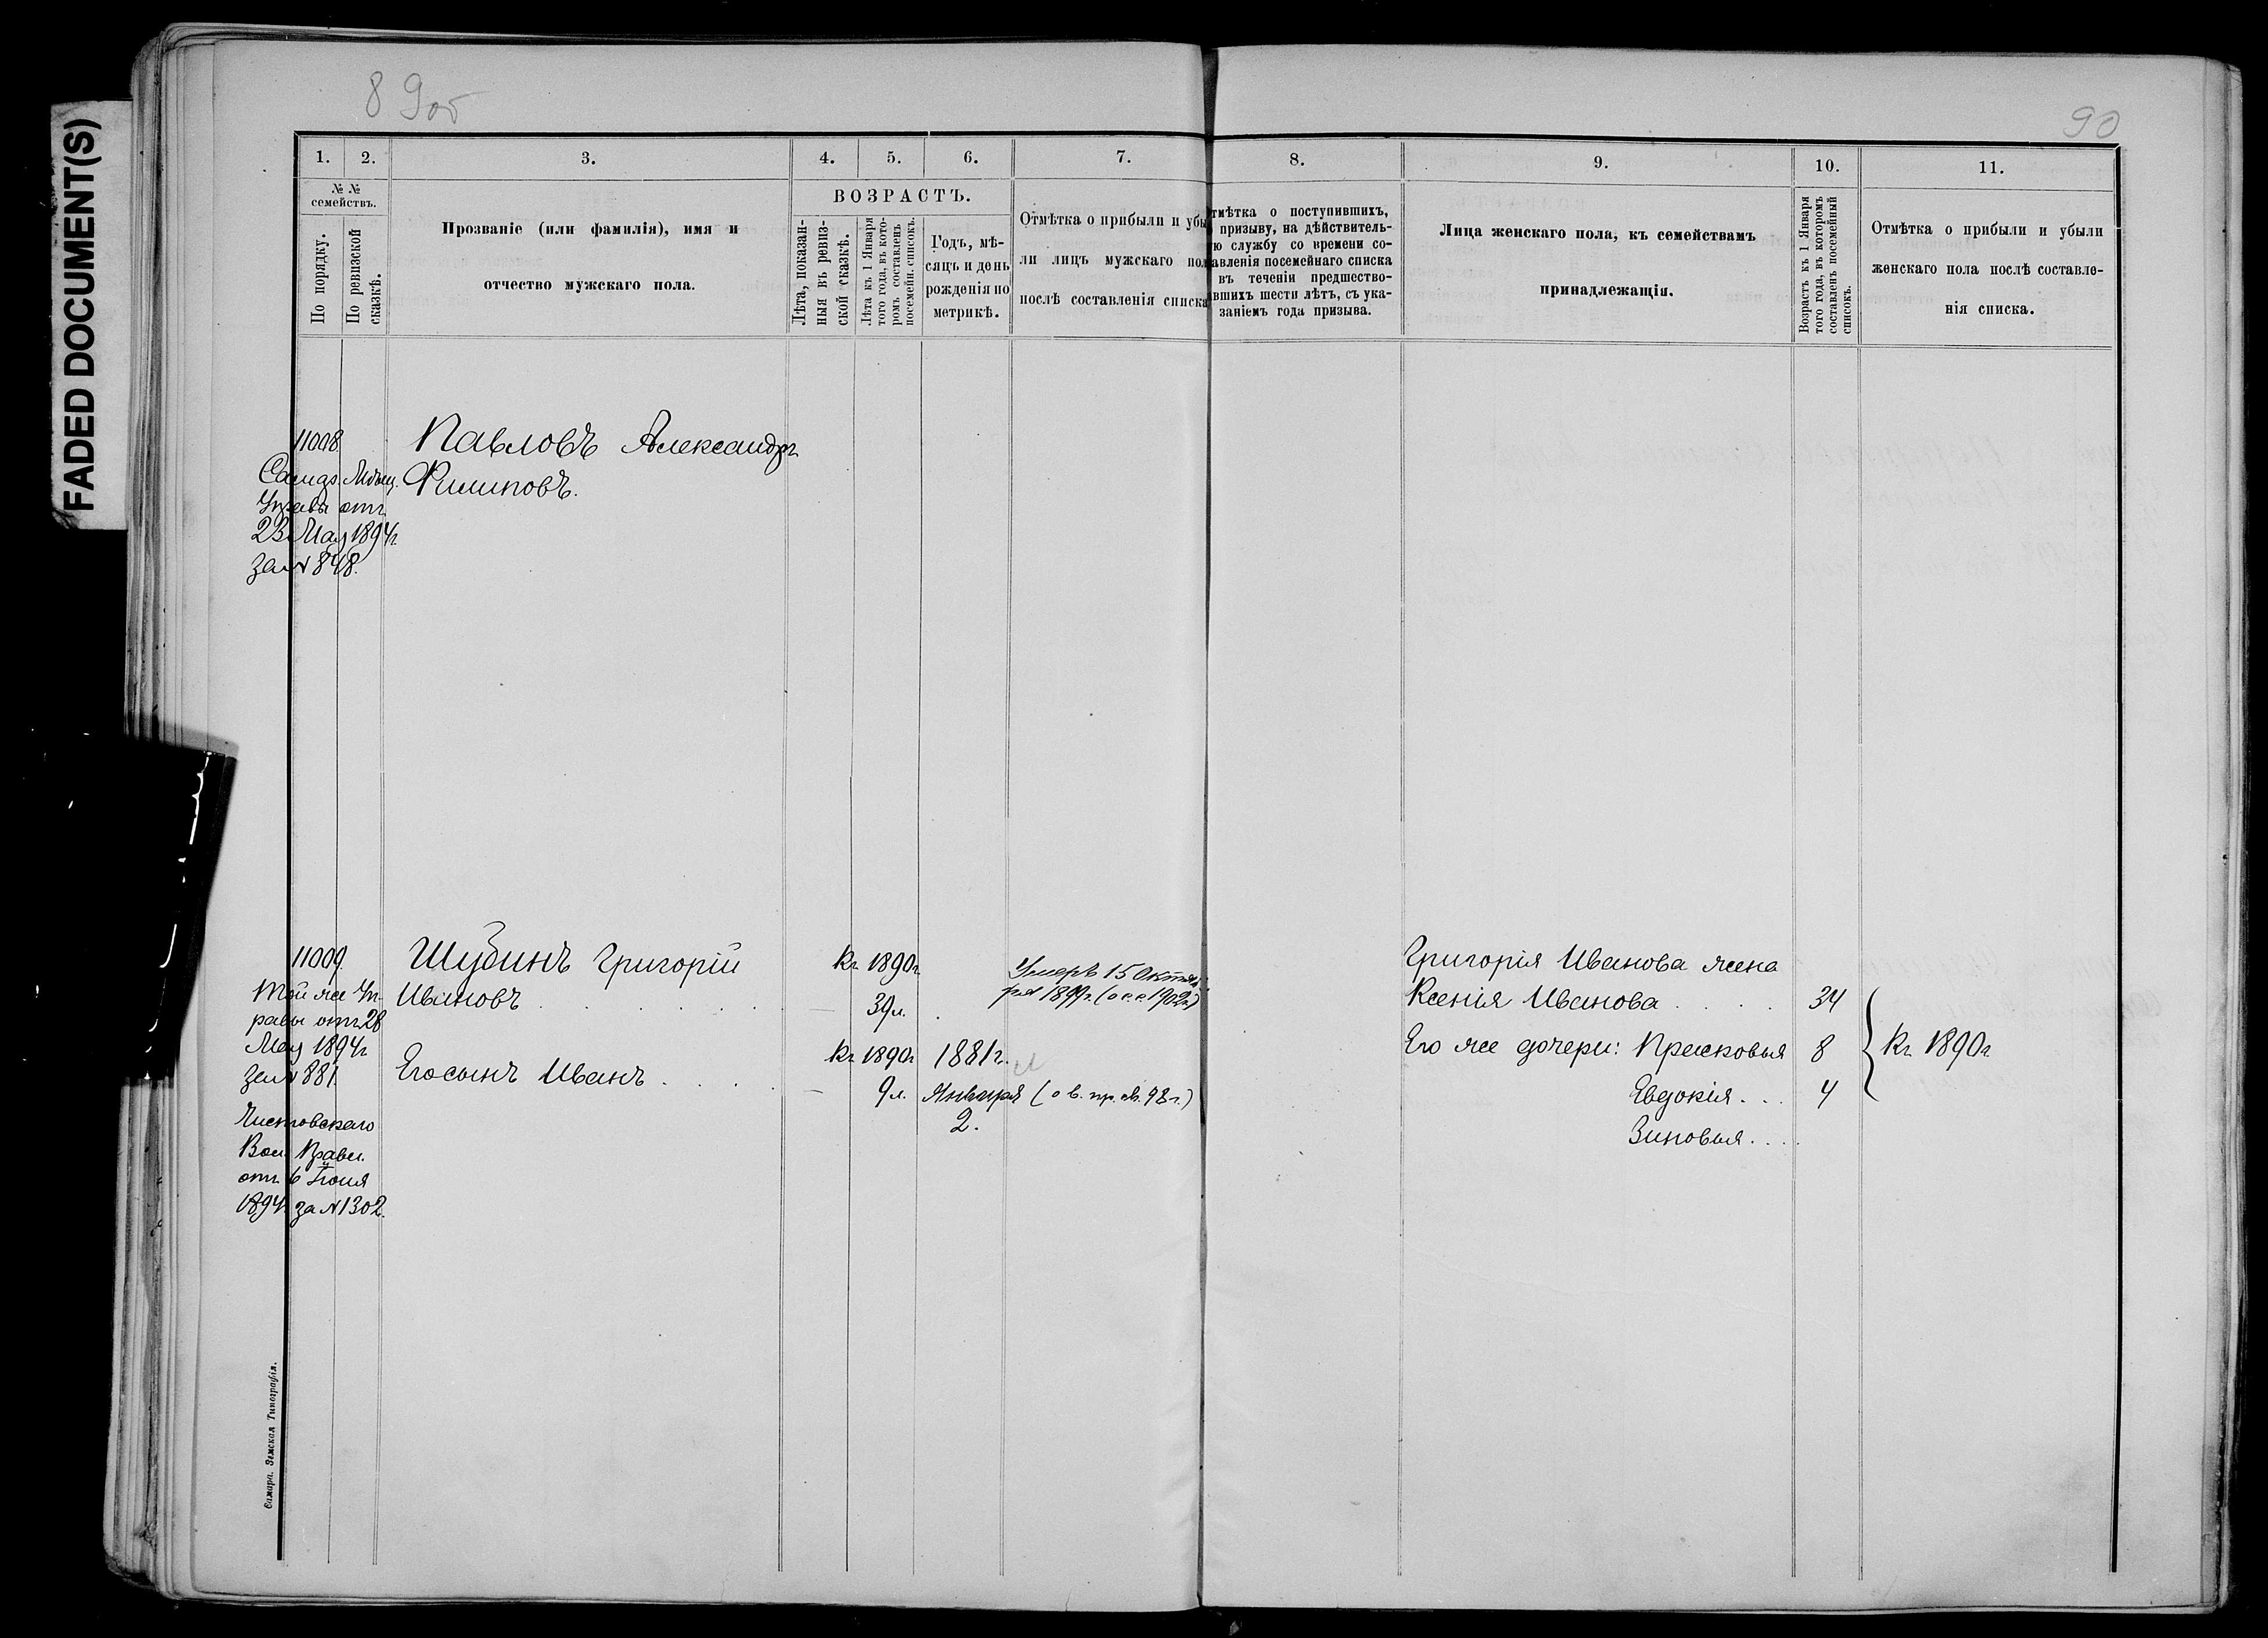 FADED DOCUMENT(S)
89об
90
1.
2.
3.
4.
5.
6.
7.
8.
9.
10.
11.
№ №
семействъ.
По порядку.
По ревизской
сказкѣ.
Прозваніе (или фамилія), имя и
отчество мужскаго пола.
ВОЗРАСТЪ.
Лѣта, показан-
ныя въ ревиз-
ской сказкѣ.
Лѣта къ 1 Января
того года, въ кото-
ромъ составленъ
посемейн. списокъ.
Годъ, мѣ-
сяцъ и день
рожденія по
метрикѣ.
Отмѣтка о прибыли и убы
ли лицъ мужскаго пол
послѣ составленія списка
тмѣтка о поступившихъ,
призыву, на дѣйствитель-
ю службу со времени со-
авленія посемейнаго списка
въ теченіи предшество-
вшихъ шести лѣтъ, съ ука-
заніемъ года призыва.
Лица женскаго пола, къ семействамъ
принадлежащія.
Возрастъ къ 1 Января
того года, въ которомъ
составленъ посемейный
списокъ.
Отмѣтка о прибыли и убыли
женскаго пола послѣ составле-
нія списка.
11008.
Павловъ Александръ
Филиповъ.
Самар. Мѣщ.
Управы отъ
23 Мая 1894г.
за № 848.
11009.
Той же Уп-
равы отъ 28
Мая 1894г
за № 881
Вол. Правл.
отъ 6 Іюня
1894. за № 1302.
Шубинъ Григорій
Ивановъ . . . . . .
Къ 1890г
39л.
Умеръ 15 Октяб-
ря 1899г. (о с. с. 1902г.)
Его сынъ Иванъ . . . .
Къ 1890г
9л.
1881г.
Января (о в. пр. св. 98г.)
2.
Григорія Иванова жена
Ксенія Иванова . . . . 34
Его же дочери: Прасковья 8
Евдокія . . . 4
Зиновья . . . .
Къ 1890г
Самара. Земская Типографія.